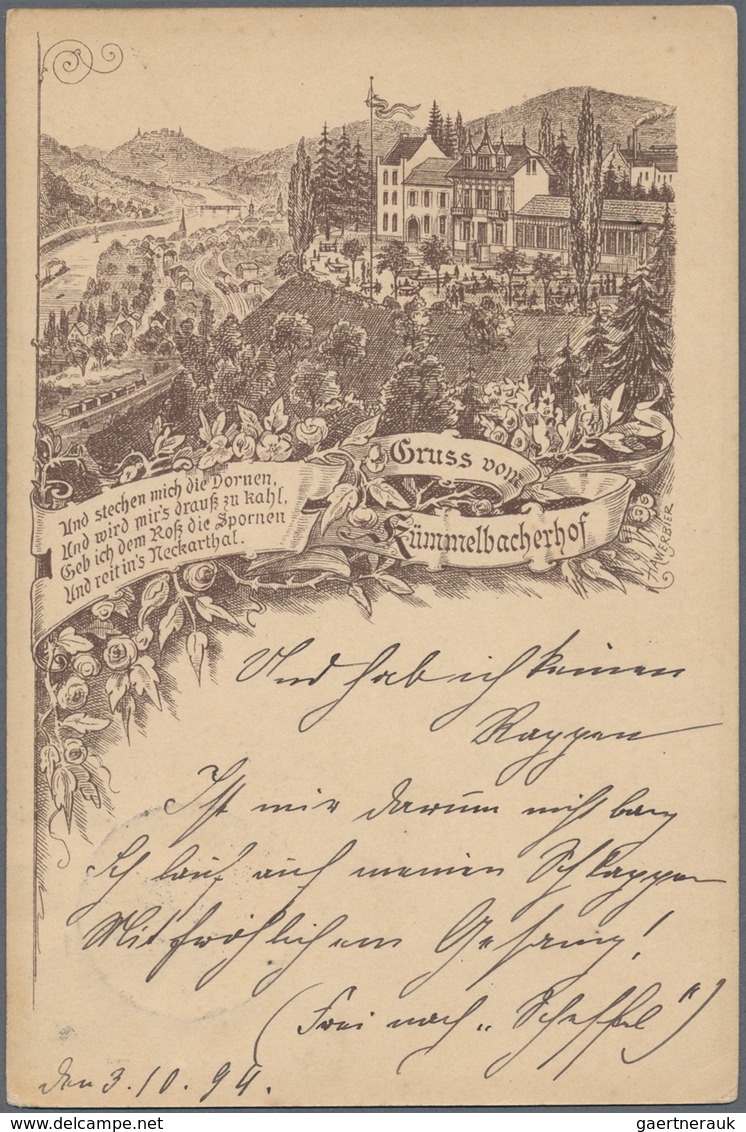 Gruss vom
Kümmelbacherhof
Und stechen mich die Dornen,
Und wird mir's drauß zu kahl,
Geb ich dem Roß die Spornen
Und reit in's Neckarthal.
HAVERBIER
Und hab ich keinen
Rappen
Ist mir darum nicht bang
Ich lauf auf meinen Schlappen
Mit fröhlichem Gesang!
(Frei nach „Scheffel")
den 3.10.94.
gaertnerauk